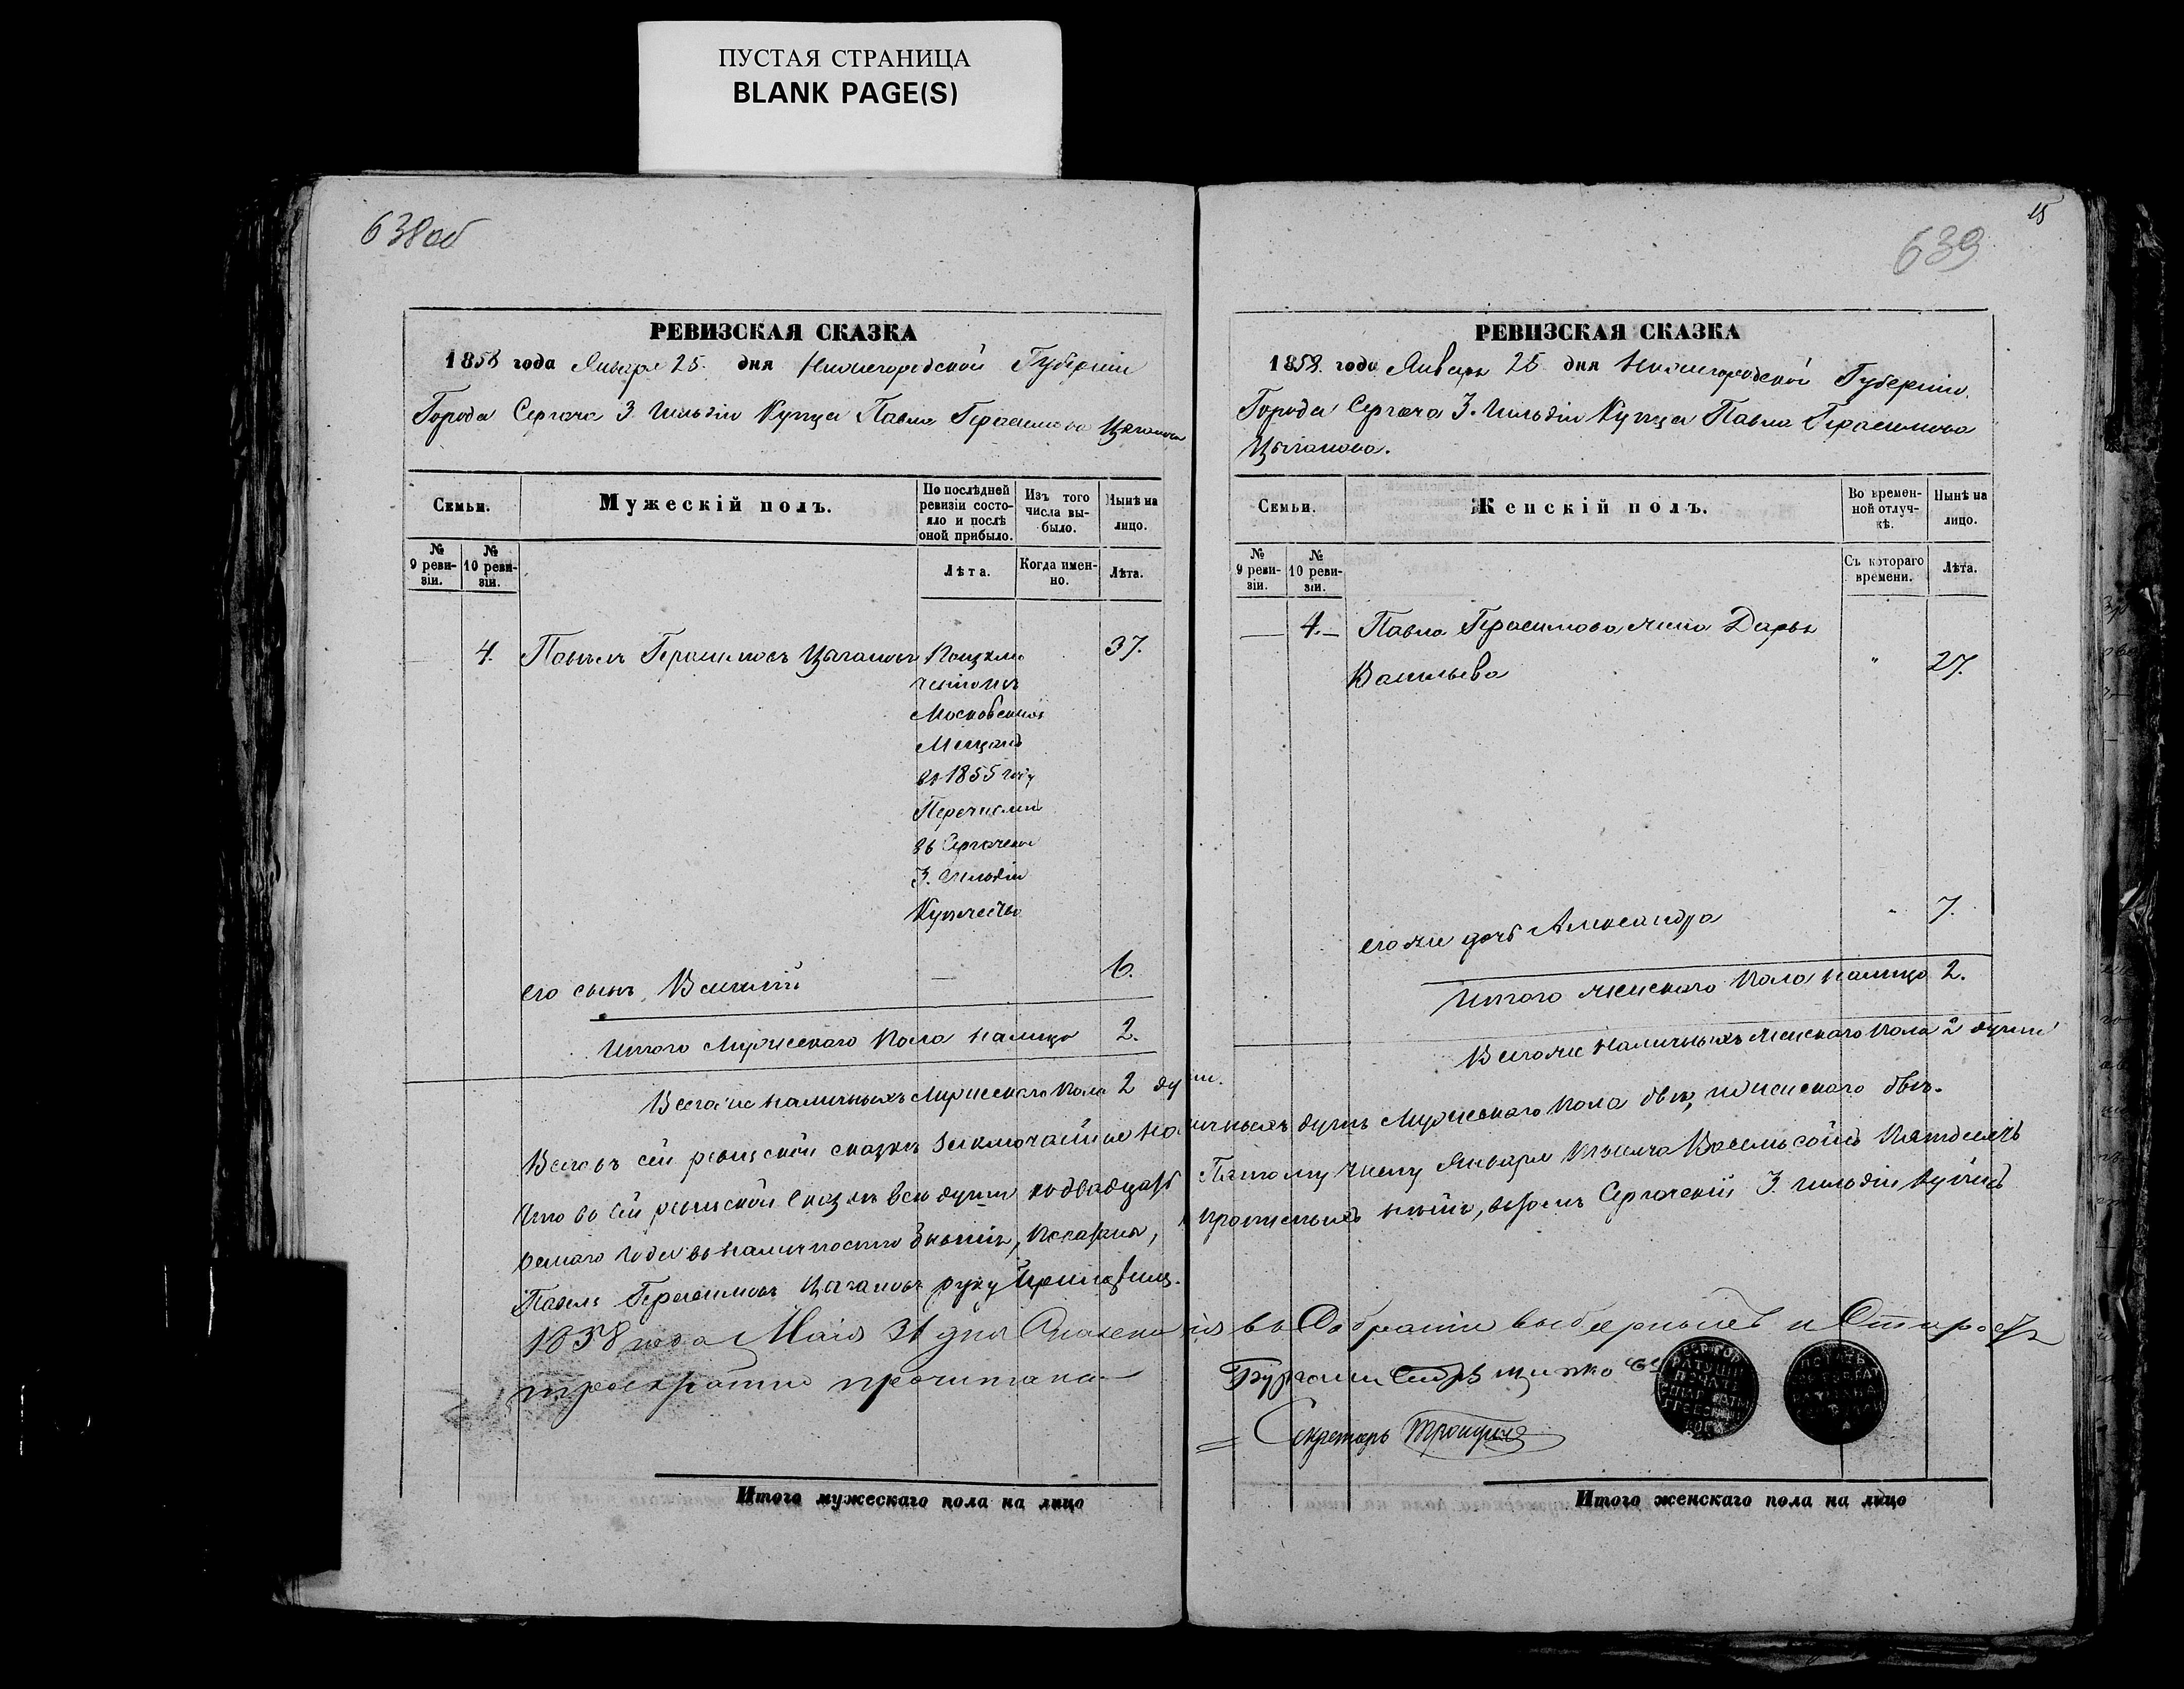 ПУСТАЯ СТРАНИЦА
BLANK PAGE(S)
638об
РЕВИЗСКАЯ СКАЗКА
1858 года Января 25. дня Нижегородской Губерніи
Города Сергача 3. Гильдіи Купца Павла Герасимова Цыганова
Семьи.
Мужескій полъ.
По послѣдней ревизіи состояло и послѣ оной прибыло.
Изъ того числа выбыло.
Нынѣ на лицо.
№ 9 ревизіи.
№ 10 ревизіи.
Лѣта.
Когда именно.
Лѣта.
4. Павелъ Герасимовъ Цыгановъ 37.
Московскихъ
Мещанъ
въ 1855 году
Перечисленъ
въ Сергачское
3. Гильдіи
Купечество
его сынъ, Василий — 6.
Итого Мужескаго Пола налицо 2.
Всего же наличныхъ Мужескаго Пола 2 души.
Итого мужескаго пола на лицо
15
639
РЕВИЗСКАЯ СКАЗКА
1858. года Января 25 дня Нижегородской Губерніи.
Города Сергача 3. Гильдіи Купца Павла Герасимова
Цыганова.
Семьи.
Женскій полъ.
Во временной отлучкѣ.
Нынѣ на лицо.
№ 9 ревизіи.
№ 10 ревизіи.
Съ котораго времени.
Лѣта.
— 4.— Павла Герасимова жена Дарья
Васильева " 27.
его же дочь Александра " 7.
Итого женскаго Пола налицо 2.
Всего же наличныхъ женскаго пола 2 души
Всего въ сей ревизской сказкѣ заключается наличныхъ душъ Мужескаго Пола двѣ, и женскаго двѣ.
Что въ сей ревизской сказкѣ всѣ души къ двадцать Пятому числу Января тысяча Восемь сотъ Пятдесятъ
осмаго года въ наличности бывшія, показаны, и прописныхъ нѣтъ, въ томъ Сергачский 3. гильдіи купецъ
Павелъ Герасимовъ Цыгановъ руку приложилъ.
1858 года Мая 31 дня Сказка сія въ Собраніи выборныхъ и Старостъ
троекратно прочитана
Секретарь Троицкій
Итого женскаго пола на лицо